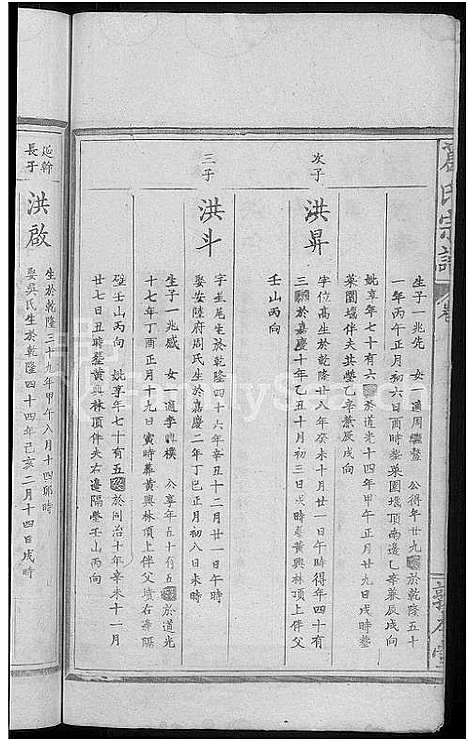 氏宗譜
生子一兆先 女一適周繼鰲 公得年廿九 於乾隆五十
一年丙午正月初六日酉時塟菜園堰頂南邊乙辛兼辰戌向
妣享年七十有六 於道光十四年甲午正月廿九日戌時塟
菜園堰伴夫共塋乙辛兼辰戌向
次子 洪昇
字位高生於乾隆廿八年癸未十月廿一日午時得年四十有
三 於嘉慶十年乙丑十月初三日戌時塟黃興林頂上伴父
壬山丙向
三子 洪斗
字並尾生於乾隆四十六年辛丑十二月廿一日午時
娶安陸府周氏生於嘉慶二年丁巳正月初八日未時
生子一兆盛 女一適李典樸 公享年五十有五 於道光
十七年丁酉正月十九日寅時葬黃興林頂上伴父墳右弟隔
塋壬山丙向 妣享年七十有五 於同治十年辛未十一月
廿七日丑時塟黃興林頂伴夫右邊隔塋壬山丙向
延幹長子 洪啟
生於乾隆三十九年甲午八月十四卯時
娶吳氏生於乾隆四十四年己亥二月十四日戌時